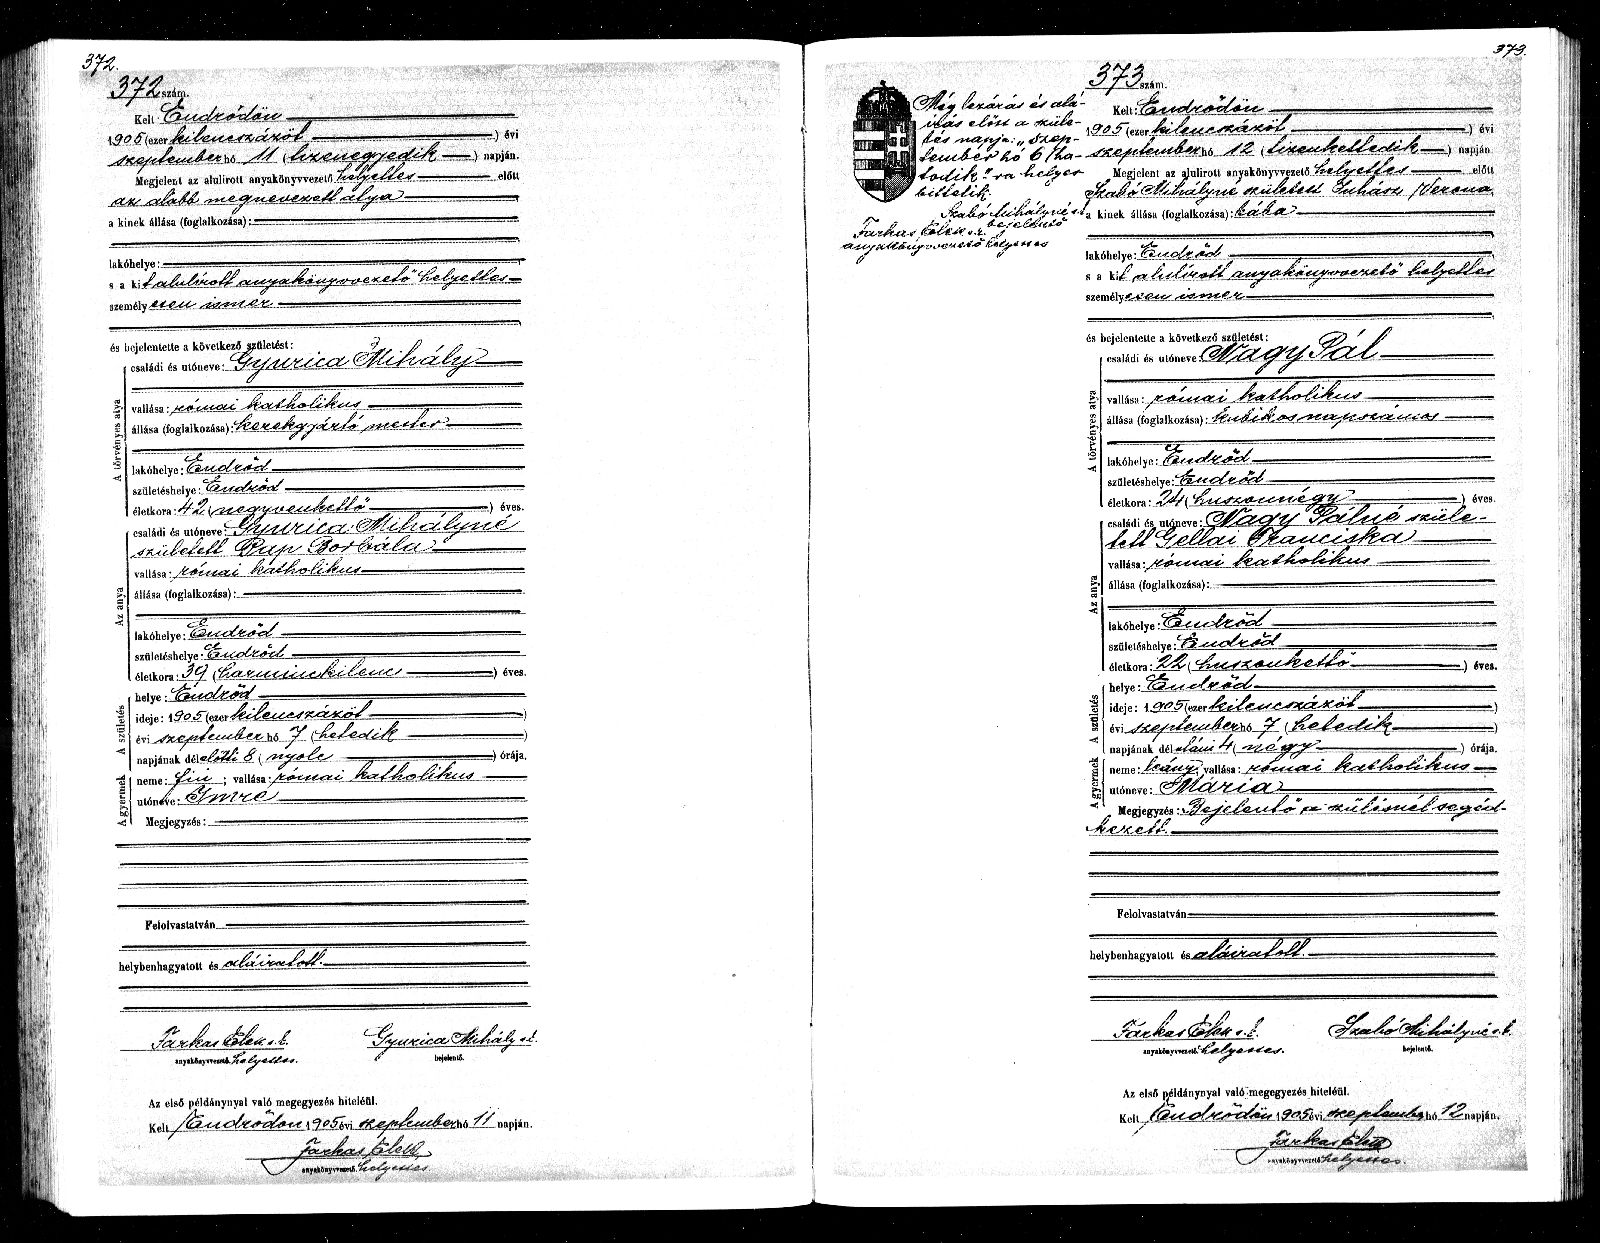 372.
372 szám.
Kelt: Endrődön
1905 (ezer kilencszázöt ) évi
szeptember hó 11 (tizenegyedik ) napján.
Megjelent az alulirott anyakönyvvezető helyettes előtt
az alább megnevezett atya
a kinek állása (foglalkozása):
lakóhelye:
s a kit alulirott anyakönyvvezető helyettes
személyesen ismer
és bejelentette a következő születést:
A törvényes atya
családi és utóneve: Gyurica Mihály
vallása: római katholikus
állása (foglalkozása): kerekgyártó mester
lakóhelye: Endrőd
születéshelye: Endrőd
életkora: 42 (negyvenkettő ) éves.
Az anya
családi és utóneve: Gyurica Mihályné
született Pap Borbála
vallása: római katholikus
állása (foglalkozása):
lakóhelye: Endrőd
születéshelye: Endrőd
életkora: 39 (harminckilenc ) éves.
A születés
helye: Endrőd
ideje: 1905 (ezer kilencszázöt )
évi szeptember hó 7 (hetedik )
napjának délelőtti 8 (nyolc ) órája.
A gyermek
neme: fiu ; vallása: római katholikus
utóneve: Imre
Megjegyzés:
Felolvastatván
helybenhagyatott és aláiratott.
Farkas Elek s.k. Gyurica Mihály s.k.
anyakönyvvezető helyettes. bejelentő.
Az első példánynyal való megegyezés hiteléül.
Kelt Endrődön 1905 évi szeptember hó 11 napján.
Farkas Elek
anyakönyvvezető helyettes
373.
Még lezárás és alá-
irás előtt a szüle-
tés napja: „szep-
tember hó 6 (ha-
todik"-ra helyes
bittetik.
Szabó Mihályné s.k.
bejelentő
Farkas Elek s.k.
anyakönyvvezető helyettes
373 szám.
Kelt: Endrődön
1905 (ezer kilencszázöt ) évi
szeptember hó 12 (tizenkettedik ) napján
Megjelent az alulirott anyakönyvvezető helyettes előtt
Szabó Mihályné született Juhász Verona
a kinek állása (foglalkozása): bába
lakóhelye: Endrőd
s a kit alulirott anyakönyvvezető helyettes
személyesen ismer
és bejelentette a következő születést:
A törvényes atya
családi és utóneve: Nagy Pál
vallása: római katholikus
állása (foglalkozása): kubikos napszámos
lakóhelye: Endrőd
születéshelye: Endrőd
életkora: 24 (huszonnégy ) éves.
Az anya
családi és utóneve: Nagy Pálné szüle-
tett Gellai Franciska
vallása: római katholikus
állása (foglalkozása):
lakóhelye: Endrőd
születéshelye: Endrőd
életkora: 22 (huszonkettő ) éves.
A születés
helye: Endrőd
ideje: 1905 (ezer kilencszázöt )
évi szeptember hó 7 (hetedik )
napjának délutáni 4 (négy ) órája.
A gyermek
neme: leány; vallása: római katholikus
utóneve: Mária
Megjegyzés: Bejelentő a szülésnél segéd-
kezett.
Felolvastatván
helybenhagyatott és aláiratott.
Farkas Elek s.k. Szabó Mihályné s.k.
anyakönyvvezető helyettes. bejelentő.
Az első példánynyal való megegyezés hiteléül.
Kelt Endrődön 1905 évi szeptember hó 12 napján.
Farkas Elek
anyakönyvvezető helyettes.